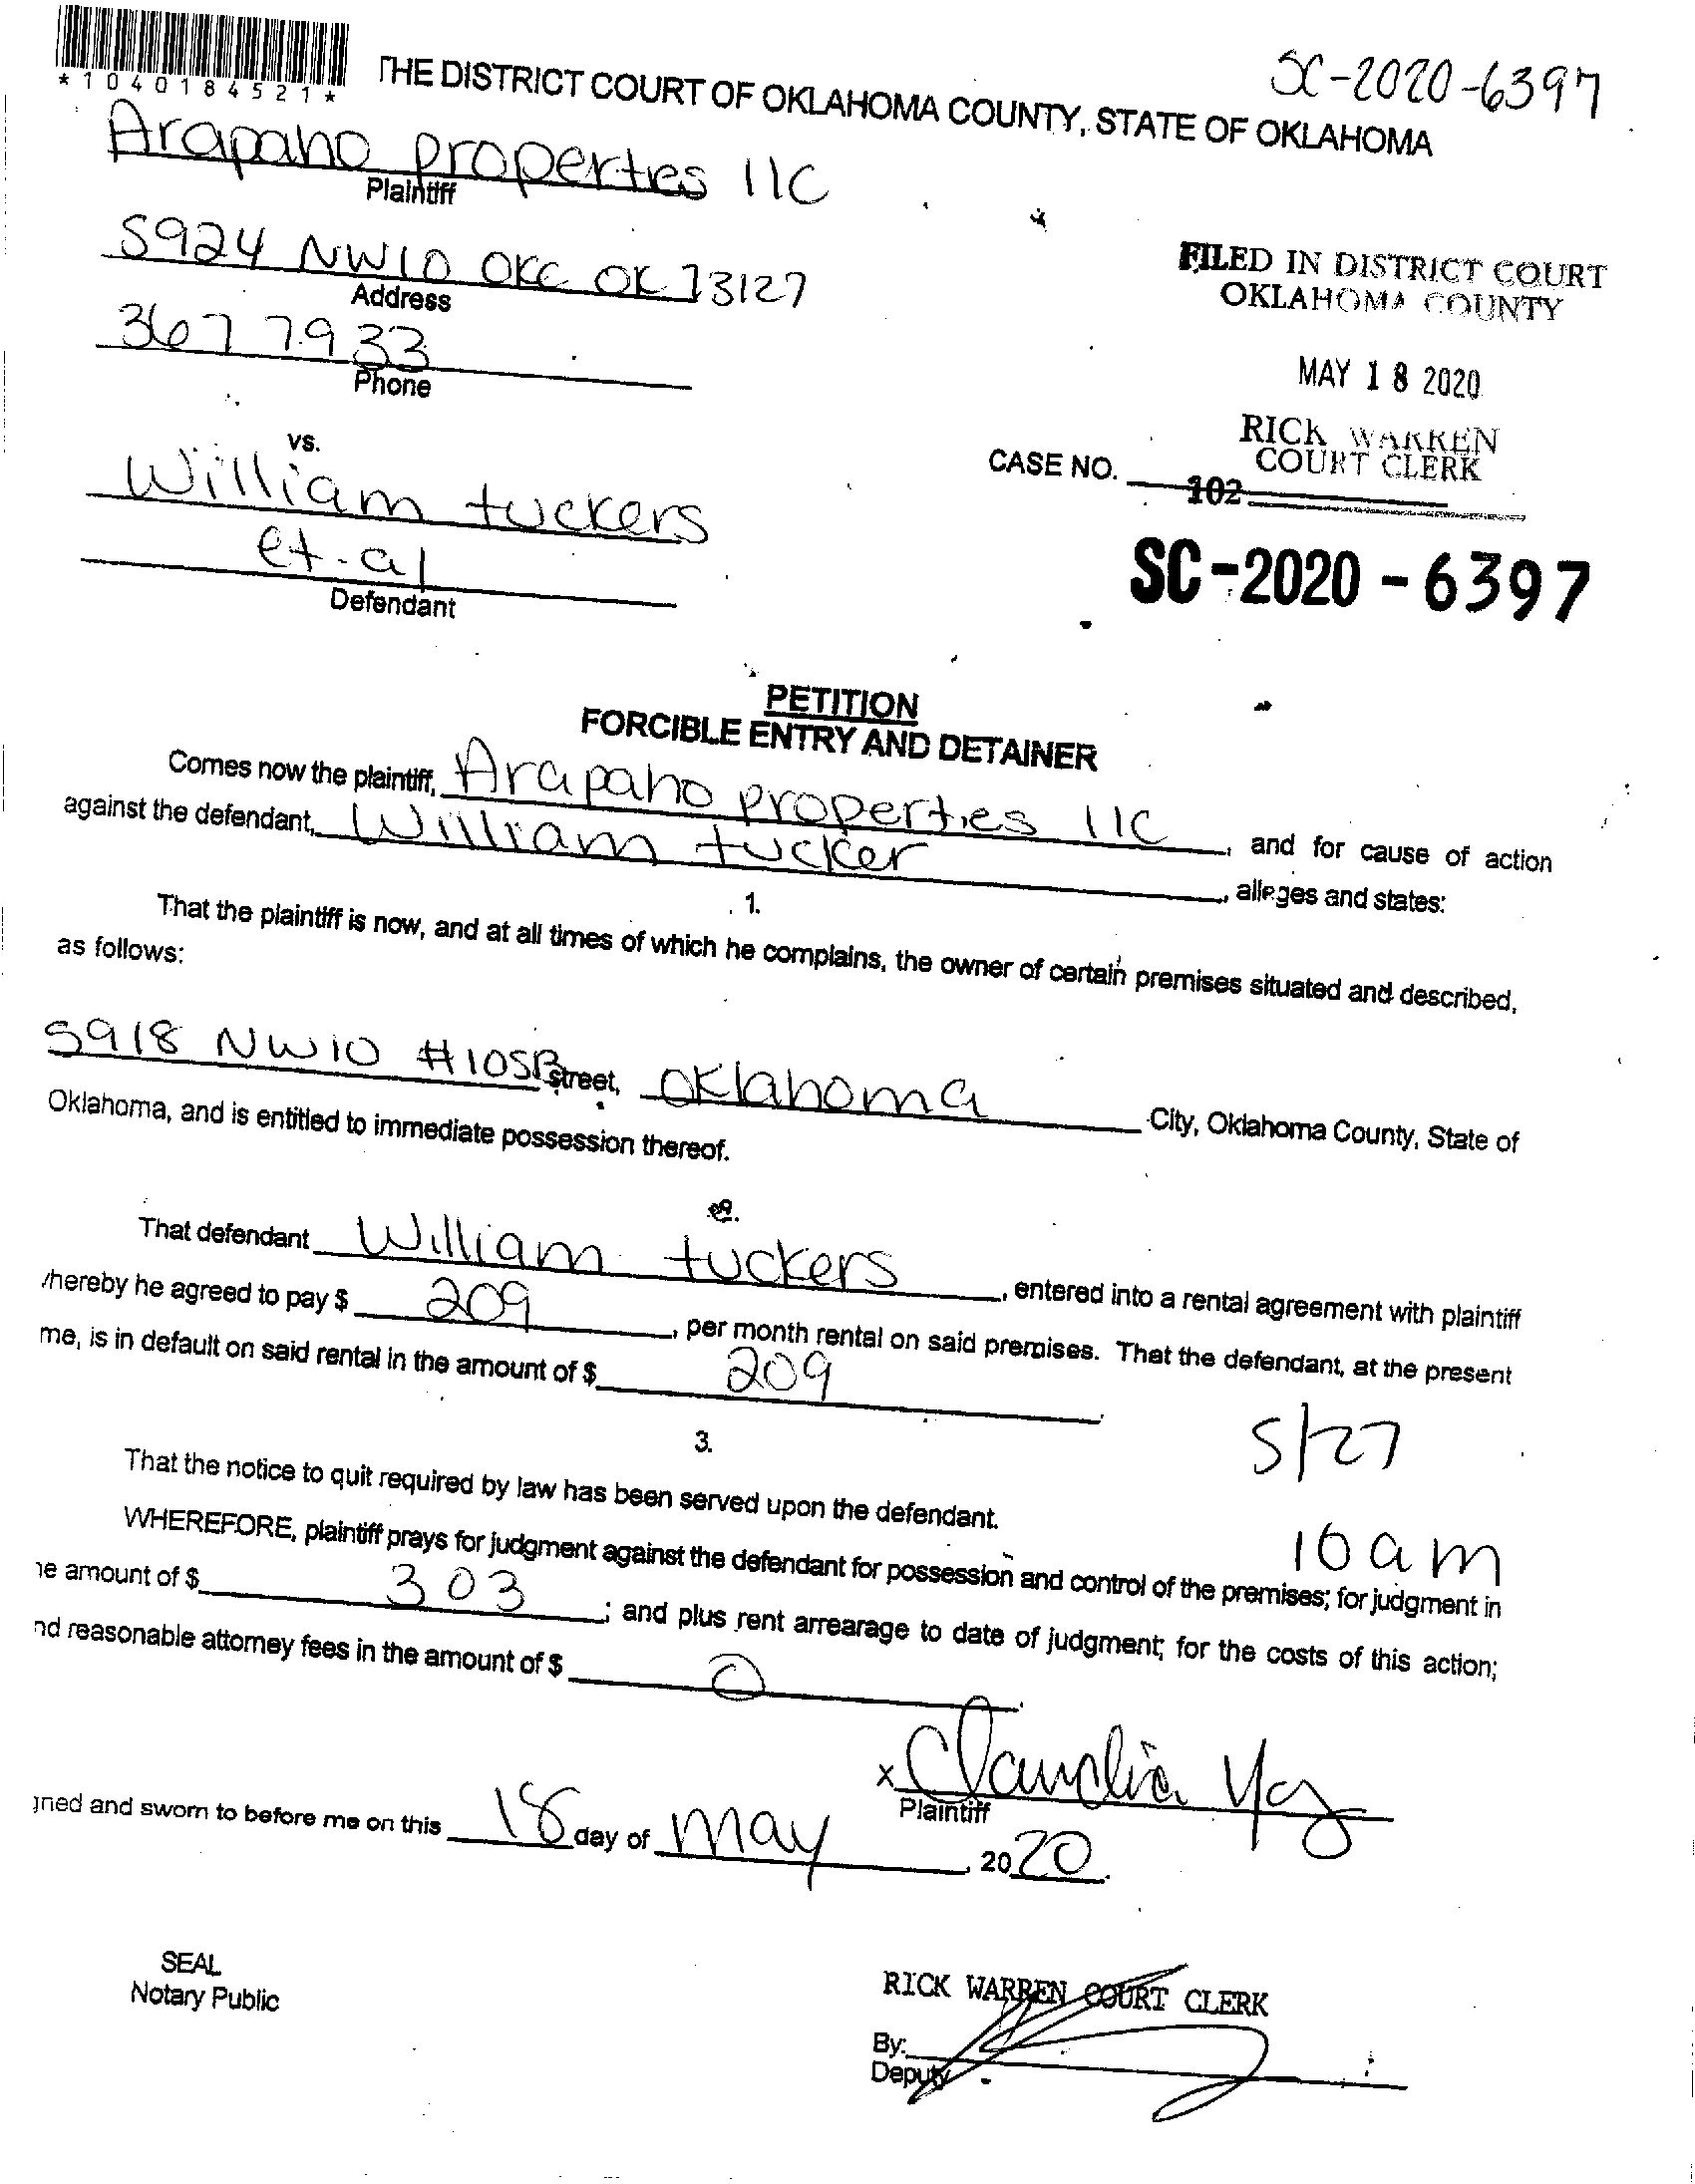 *1040184521*
THE DISTRICT COURT OF OKLAHOMA COUNTY, STATE OF OKLAHOMA
SC-2020-6397
Arapaho properties llc
Plaintiff
5924 NW10 OKC OK 73127
Address
367 7933
Phone
FILED IN DISTRICT COURT
OKLAHOMA COUNTY
MAY 18 2020
RICK WARREN
COURT CLERK
vs.
William tuckers
et.al
Defendant
CASE NO.
102
SC-2020-6397
PETITION
FORCIBLE ENTRY AND DETAINER
Comes now the plaintiff, Arapaho properties llc, and for cause of action
against the defendant, William tucker, alleges and states:
1.
That the plaintiff is now, and at all times of which he complains, the owner of certain premises situated and described,
as follows:
5918 NW10 #105B street, Oklahoma City, Oklahoma County, State of
Oklahoma, and is entitled to immediate possession thereof.
That defendant William tuckers, entered into a rental agreement with plaintiff
hereby he agreed to pay $ 209, per month rental on said premises. That the defendant, at the present
me, is in default on said rental in the amount of $ 209.
3.
5/27
10 am
That the notice to quit required by law has been served upon the defendant.
WHEREFORE, plaintiff prays for judgment against the defendant for possession and control of the premises; for judgment in
e amount of $ 303; and plus rent arrearage to date of judgment; for the costs of this action;
nd reasonable attorney fees in the amount of $ 0.
x Claudia
Plaintiff
gned and sworn to before me on this 18 day of May, 2020.
SEAL
Notary Public
RICK WARREN COURT CLERK
By:
Deputy